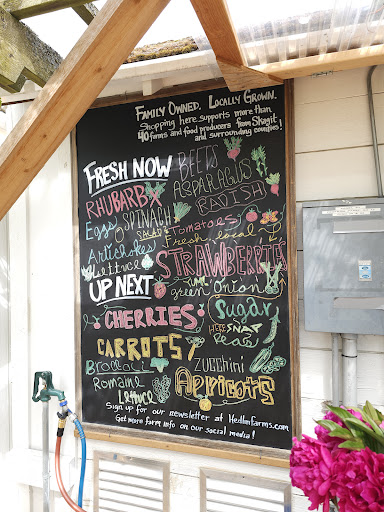 Family Owned. Locally Grown.
Shopping here supports more than
40 farms and food producers from Skagit
and surrounding counties!
FRESH NOW BEETS
RHUBARB ASPARAGUS
Eggs SPINACH RADISH
SALAD Tomatoes
Artichokes Fresh local
Lettuce STRAWBERRIES
UP NEXT green onion
CHERRIES Sugar
SNAP
Peas
CARROTS
Broccoli ZUCCHINI
Romaine Apricots
Lettuce
Sign up for our newsletter at HedlinFarms.com
Get more farm info on our social media!